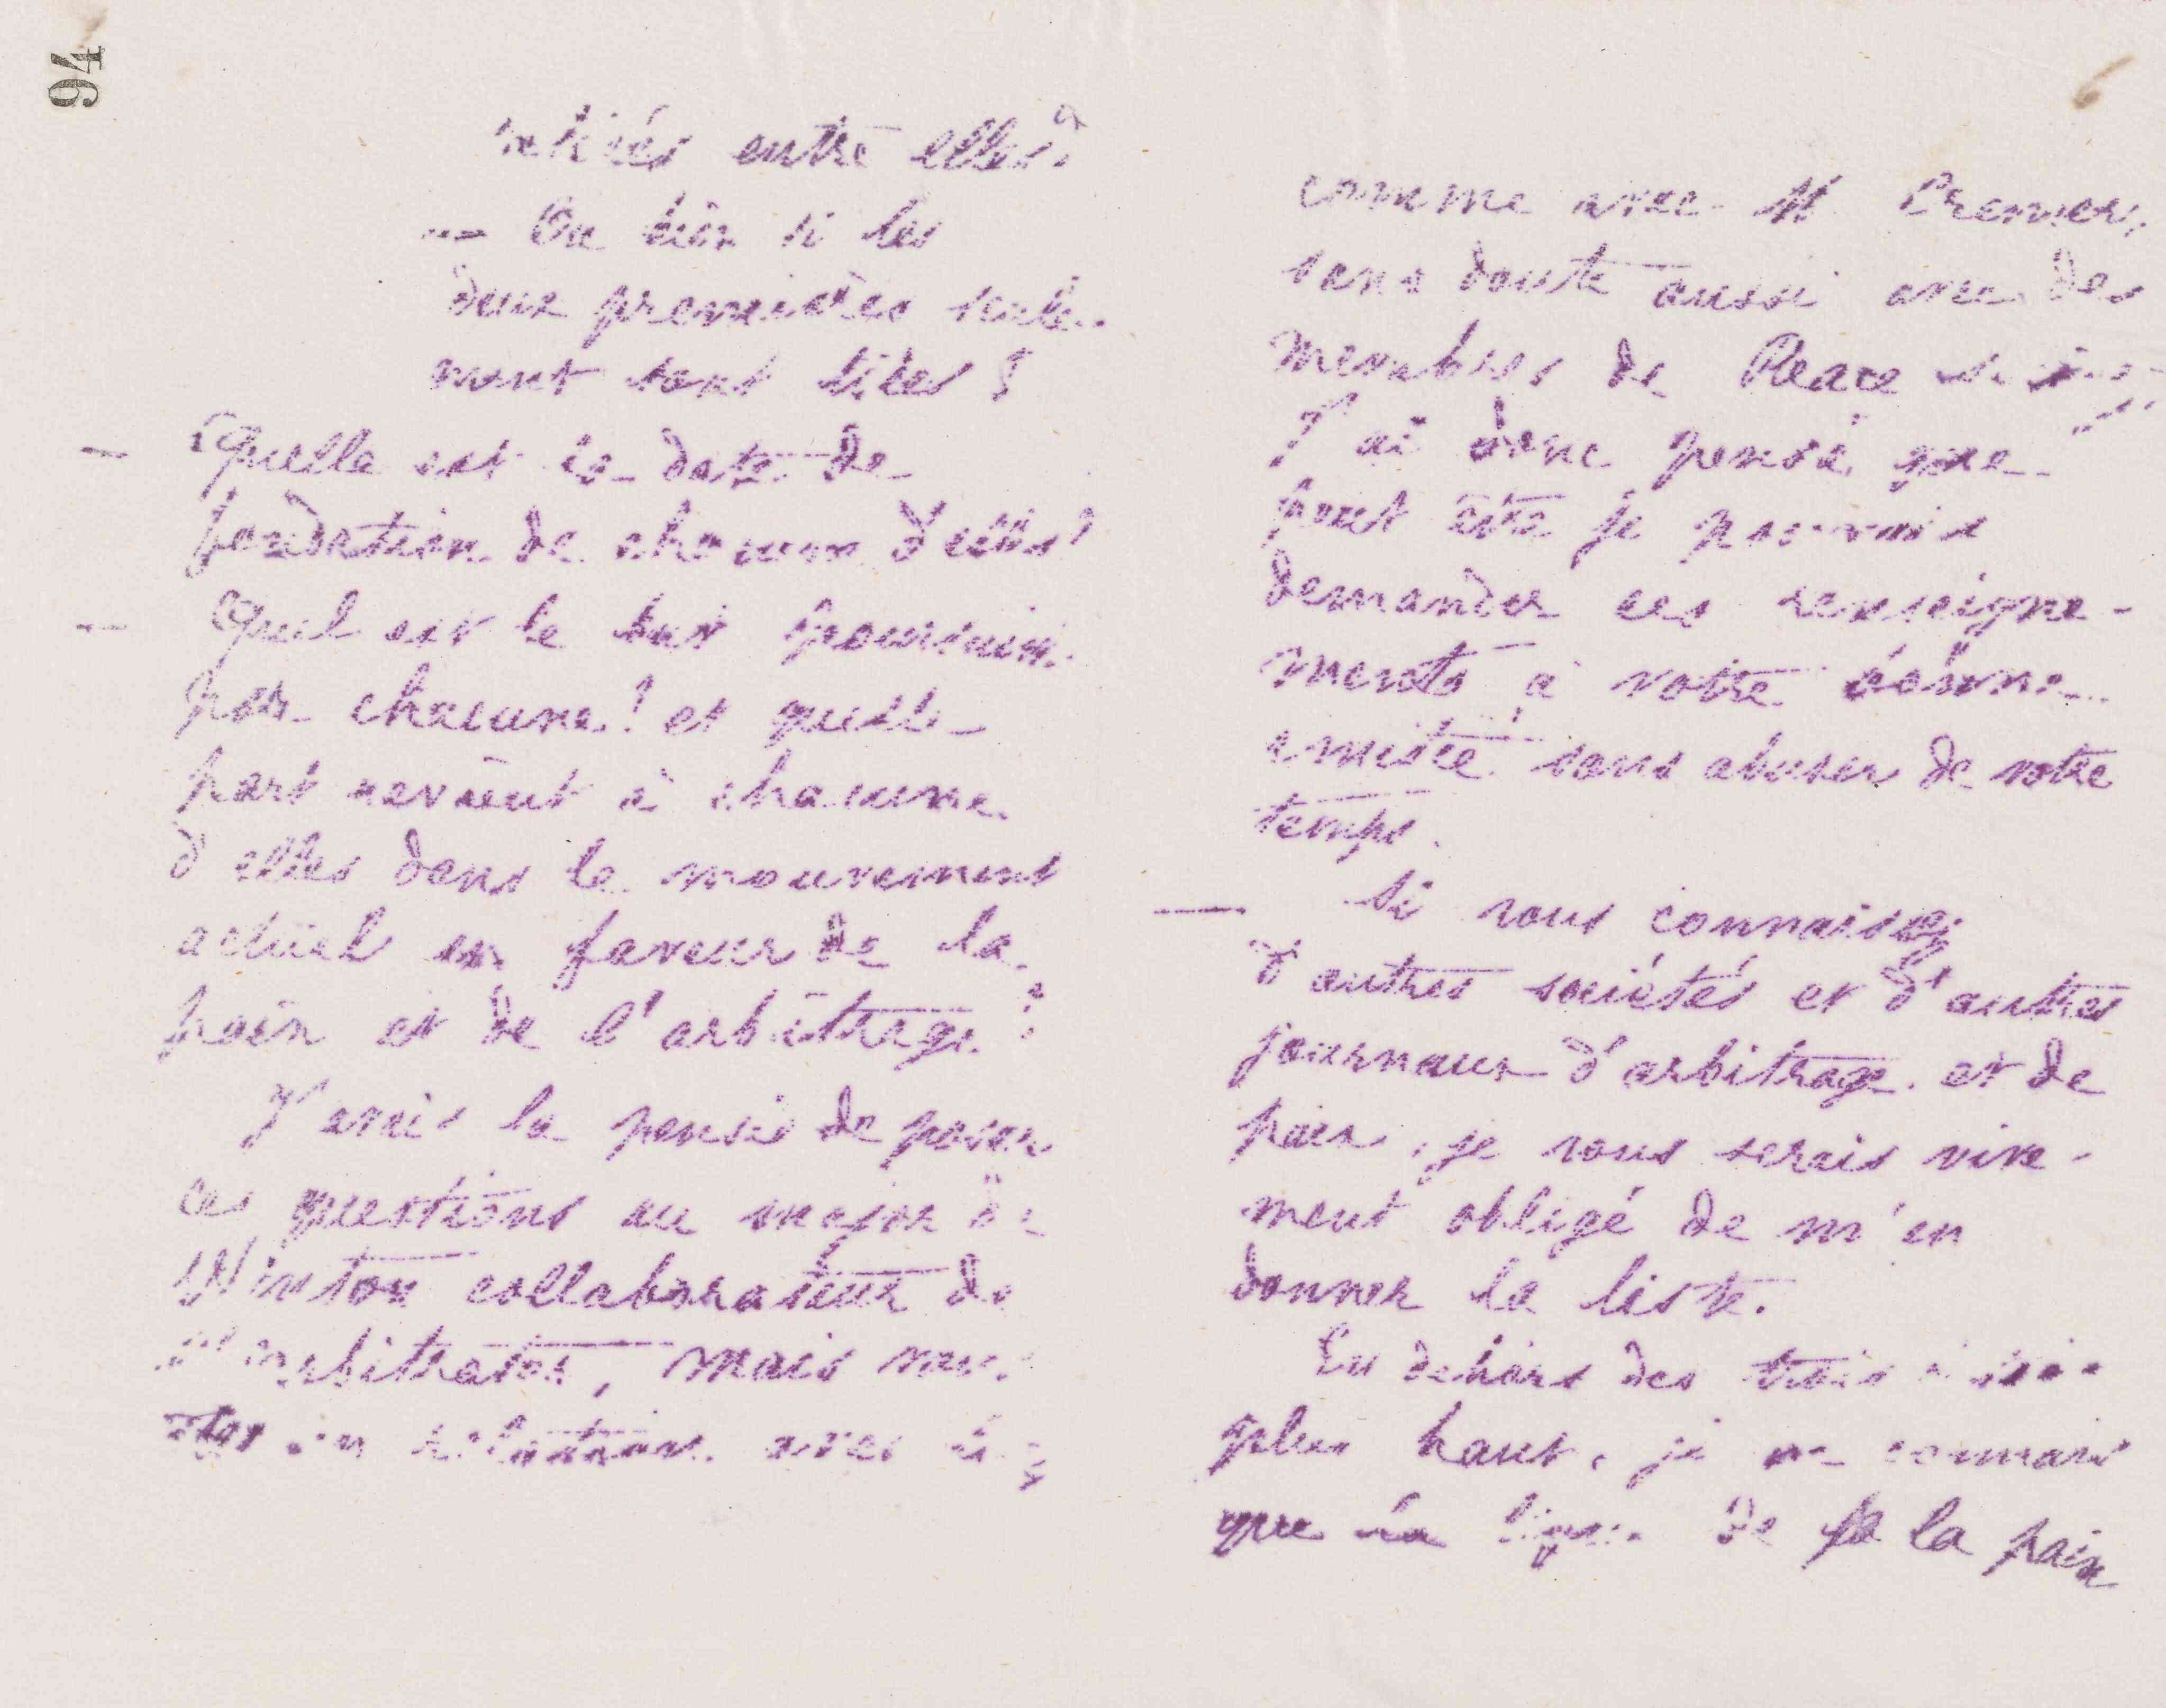 94
6
entre elles?
-- Ou bien si les
deux premières seule-
ment sont liées ?
- Quelle est la date de
fondation de chacune d'elles?
- Quel est le but poursuivi
par chacune ? et quelle
part revient à chacune
d'elles dans le mouvement
actuel en faveur de la
paix et de l'arbitrage ?
J'avais la pensée de poser
ces questions au major de
Winton collaborateur de
l'arbitrator, mais vous
êtes en relations avec lui
comme avec M Cremer,
sans doute aussi avec des
membres de Peace
J'ai donc pensé que
peut être je pourrais
demander ces renseigne-
ments à votre bonne
amitié sans abuser de votre
temps.
— Si vous connaissez
d'autres sociétés et d'autres
journaux d'arbitrage et de
paix, je vous serais vive-
ment obligé de m'en
donner la liste.
En dehors des trois
plus haut, je ne connais
que la ligue de la paix